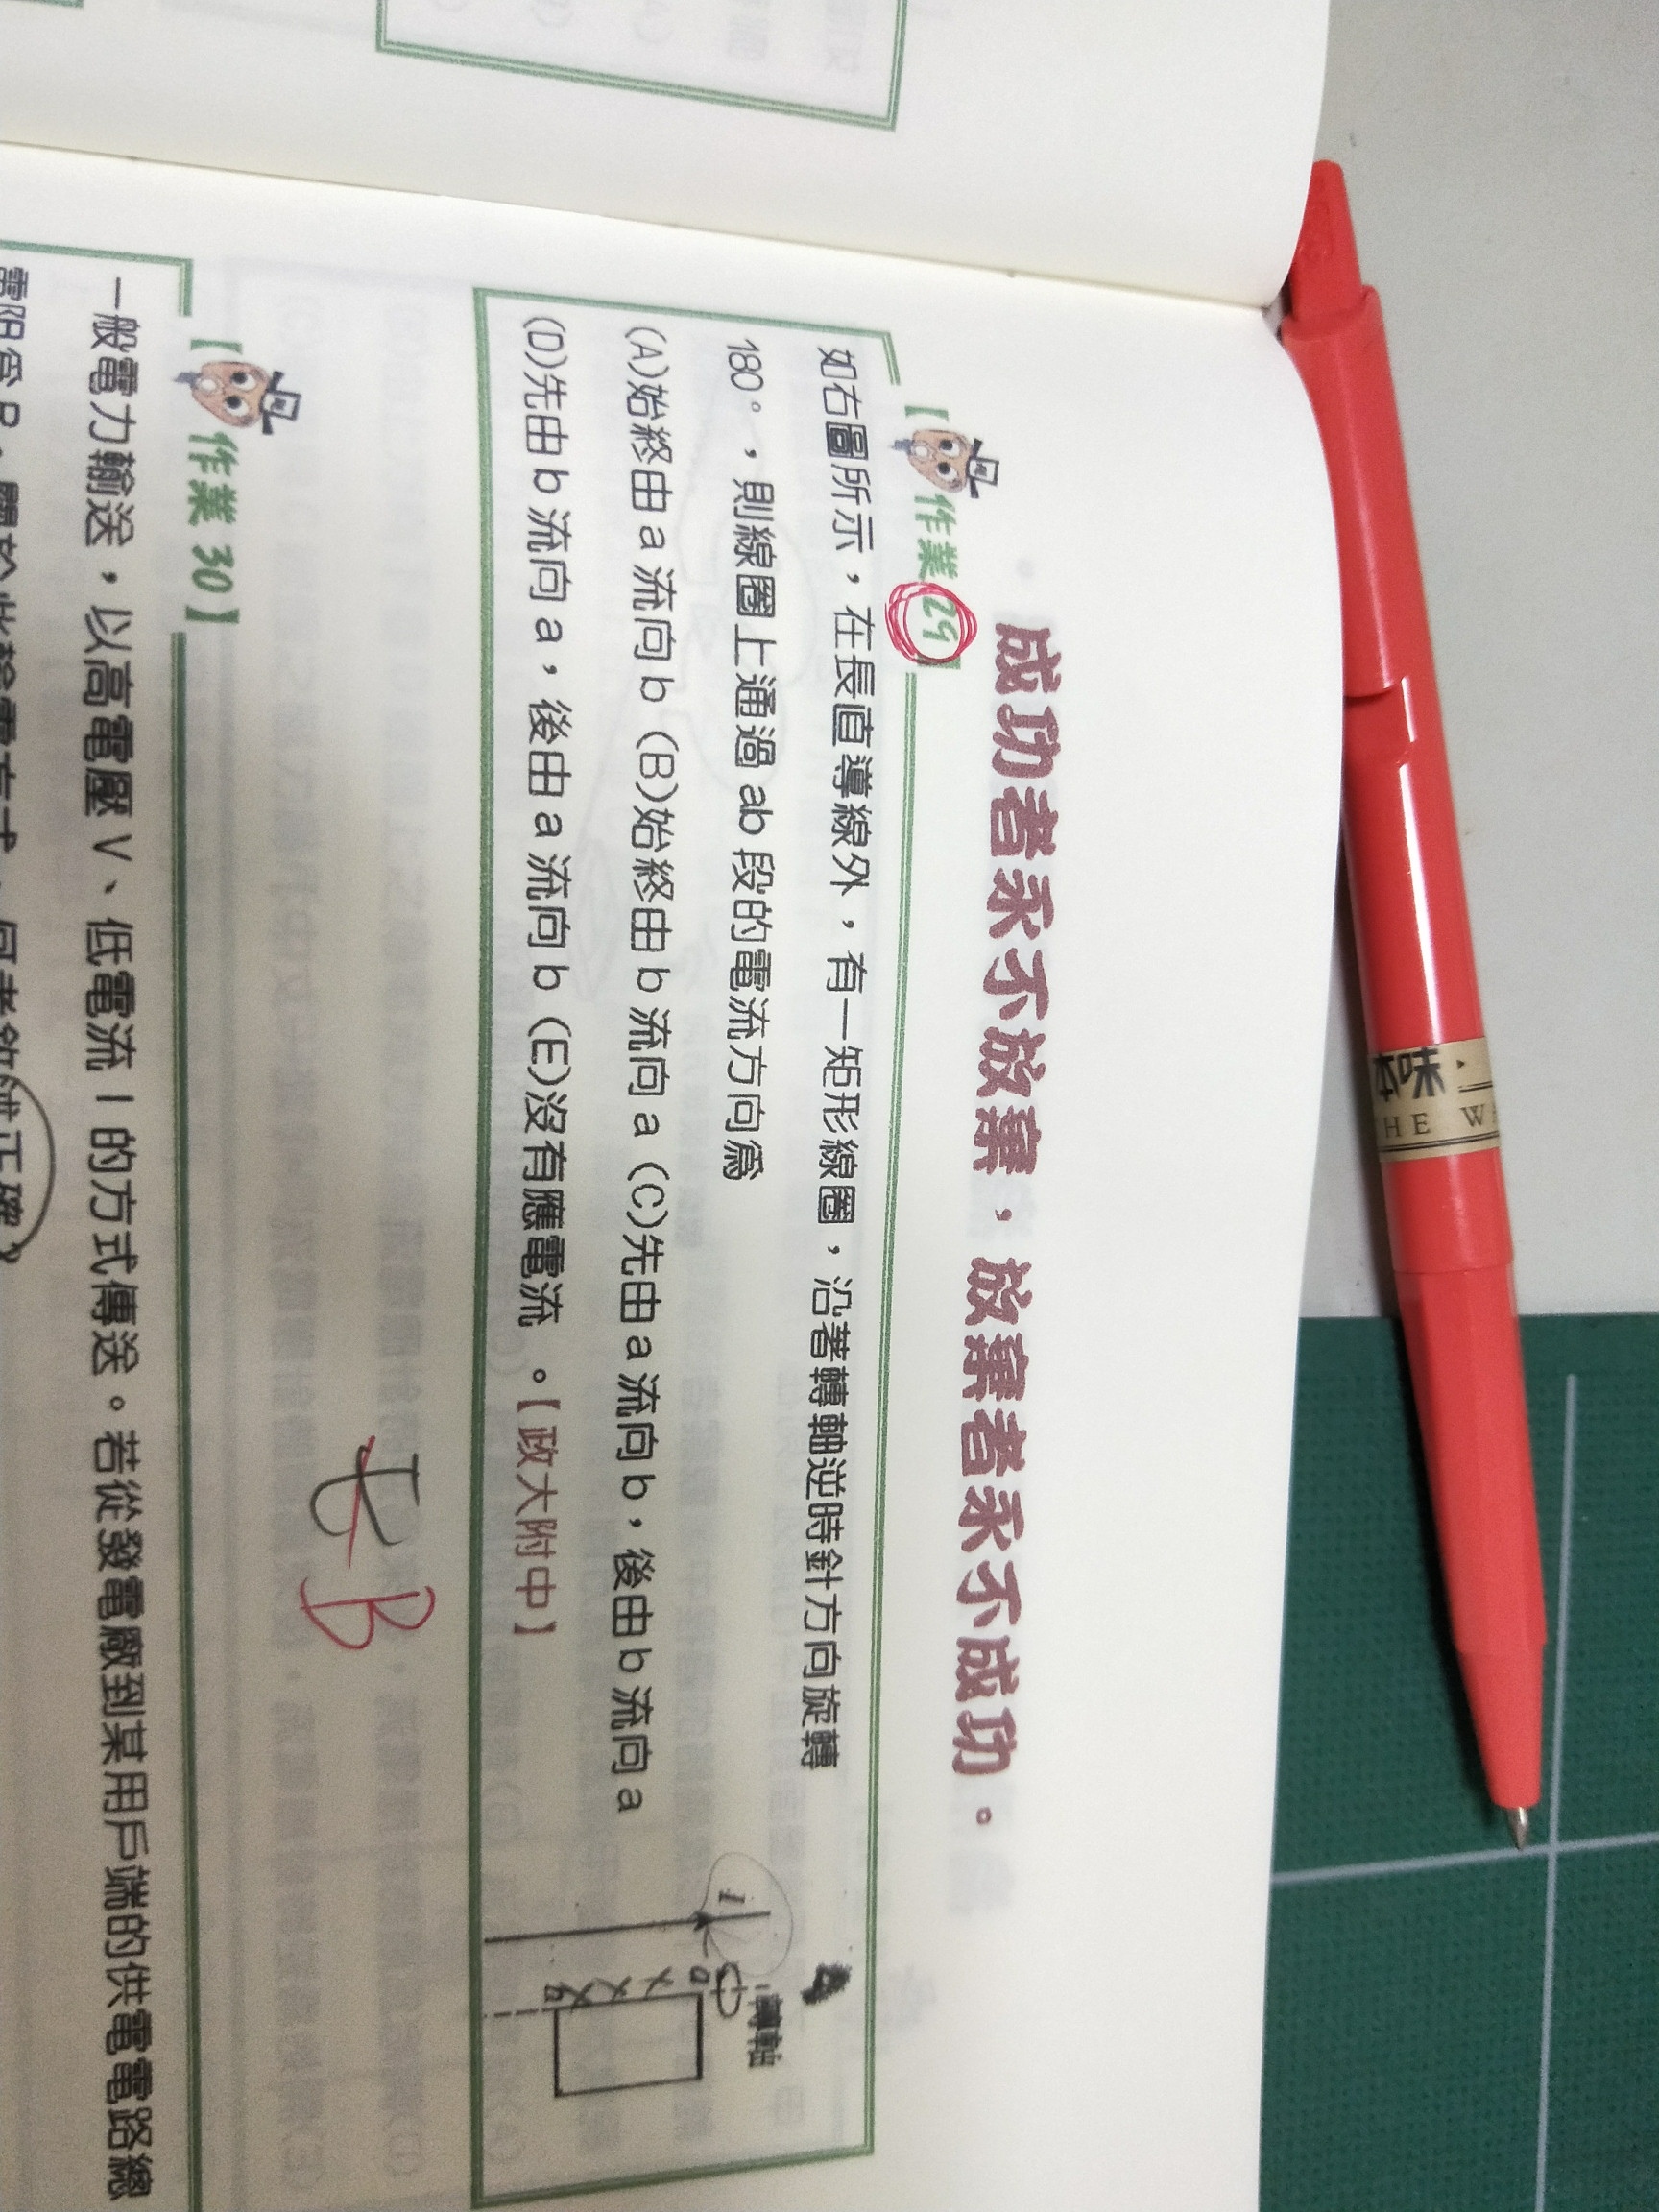 成功者永不放棄，放棄者永不成功。
【作業 29】
如右圖所示，在長直導線外，有一矩形線圈，沿著轉軸逆時針方向旋轉
180°，則線圈上通過 ab 段的電流方向為
(A)始終由 a 流向 b (B)始終由 b 流向 a (C)先由 a 流向 b，後由 b 流向 a
(D)先由 b 流向 a，後由 a 流向 b (E)沒有應電流 。【政大附中】
轉軸
I
a
b
B
【作業 30】
一般電力輸送，以高電壓 V、低電流 I 的方式傳送。若從發電廠到某用戶端的供電電路總
本味
HE W